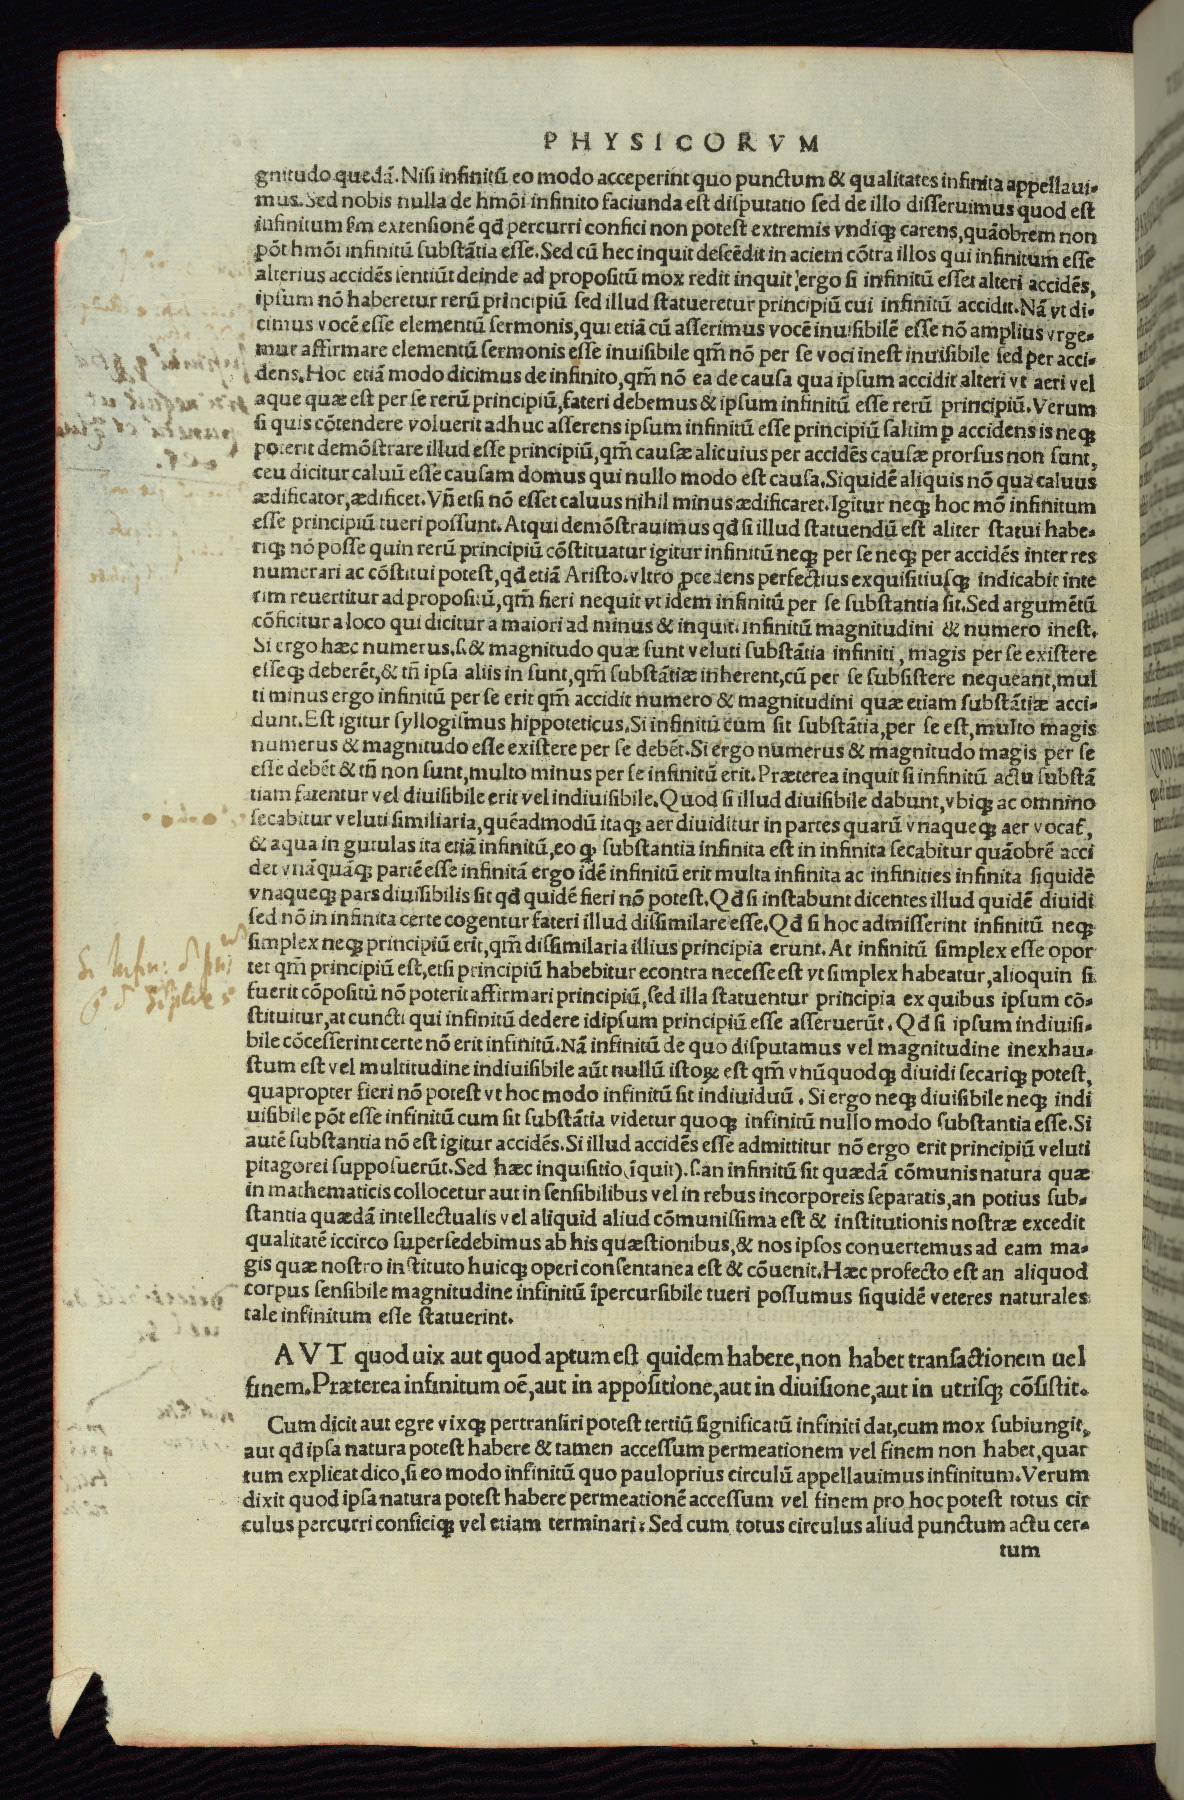 PHYSICORVM
gnitudo quedã. Nisi infinitũ eo modo acceperint quo punctum & qualitates infinita appellaui-
mus. Sed nobis nulla de hmõi infinito faciunda est disputatio sed de illo disseruimus quod est
infinitum fm extensionẽ qđ percurri confici non potest extremis vndiqꝫ carens, quãobrem non
põt hmõi infinitũ substãtia esse. Sed cũ hec inquit descẽdit in aciem cõtra illos qui infinitum esse
alterius accidẽs sentiũt deinde ad propositũ mox redit inquit ergo si infinitũ esset alteri accidẽs,
ipsum nõ haberetur rerũ principiũ sed illud statueretur principiũ cui infinitũ accidit. Nã vt di-
cimus vocẽ esse elementũ sermonis, qui etiã cũ asserimus vocẽ inuisibilẽ esse nõ amplius vrge-
mur affirmare elementũ sermonis esse inuisibile qm̃ nõ per se voci inest inuisibile sed per acci-
dens. Hoc etiã modo dicimus de infinito, qm̃ nõ ea de causa qua ipsum accidit alteri vt aeri vel
aque quæ est per se rerũ principiũ, fateri debemus & ipsum infinitũ esse rerũ principiũ. Verum
si quis cõtendere voluerit adhuc asserens ipsum infinitũ esse principiũ saltim ꝑ accidens is neqꝫ
poterit demõstrare illud esse principiũ, qm̃ causæ alicuius per accidẽs causæ prorsus non sunt,
ceu dicitur caluũ esse causam domus qui nullo modo est causa. Siquidẽ aliquis nõ qua caluus
ædificator, ædificet. Vñ etsi nõ esset caluus nihil minus ædificaret. Igitur neqꝫ hoc mõ infinitum
esse principiũ tueri possunt. Atqui demõstrauimus qđ si illud statuendũ est aliter statui habe-
riqꝫ nõ posse quin rerũ principiũ cõstituatur igitur infinitũ neqꝫ per se neqꝫ per accidẽs inter res
numerari ac cõstitui potest, qđ etiã Aristo. vltro ꝓcedens perfectius exquisitiusqꝫ indicabit inte
rim reuertitur ad propositũ, qm̃ fieri nequit vt idem infinitũ per se substantia sit. Sed argumẽtũ
cõficitur a loco qui dicitur a maiori ad minus & inquit. infinitũ magnitudini & numero inest.
Si ergo hæc numerus. s. & magnitudo quæ sunt veluti substãtia infiniti, magis per se existere
esseqꝫ deberẽt, & tñ ipsa aliis in sunt, qm̃ substãtiæ inherent, cũ per se subsistere nequeant, mul
ti minus ergo infinitũ per se erit qm̃ accidit numero & magnitudini quæ etiam substãtiæ acci-
dunt. Est igitur syllogismus hippoteticus. Si infinitũ cum sit substãtia, per se est, multo magis
numerus & magnitudo esse existere per se debẽt. Si ergo numerus & magnitudo magis per se
esse debẽt & tñ non sunt, multo minus per se infinitũ erit. Præterea inquit si infinitũ actu substã
tiam fatentur vel diuisibile erit vel indiuisibile. Quod si illud diuisibile dabunt, vbiqꝫ ac omnino
secabitur veluti similiaria, quẽadmodũ itaqꝫ aer diuiditur in partes quarũ vnaqueqꝫ aer vocat̃,
& aqua in gutulas ita etiã infinitũ, eo ꝙ substantia infinita est in infinita secabitur quãobrẽ acci
det vnãquãqꝫ partẽ esse infinitã ergo idẽ infinitũ erit multa infinita ac infinities infinita siquidẽ
vnaqueqꝫ pars diuisibilis sit qđ quidẽ fieri nõ potest. Qđ si instabunt dicentes illud quidẽ diuidi
sed nõ in infinita certe cogentur fateri illud dissimilare esse. Qđ si hoc admisserint infinitũ neqꝫ
simplex neqꝫ principiũ erit, qm̃ dissimilaria illius principia erunt. At infinitũ simplex esse opor
tet qm̃ principiũ est, etsi principiũ habebitur econtra necesse est vt simplex habeatur, alioquin si
fuerit cõpositũ nõ poterit affirmari principiũ, sed illa statuentur principia ex quibus ipsum cõ-
stituitur, at cuncti qui infinitũ dedere idipsum principiũ esse asseruerũt. Qđ si ipsum indiuisi-
bile cõcesserint certe nõ erit infinitũ. Nã infinitũ de quo disputamus vel magnitudine inexhau-
stum est vel multitudine indiuisibile aũt nullũ istoꝝ est qm̃ vnũquodqꝫ diuidi secariqꝫ potest,
quapropter fieri nõ potest vt hoc modo infinitũ sit indiuiduũ. Si ergo neqꝫ diuisibile neqꝫ indi
uisibile põt esse infinitũ cum sit substãtia videtur quoqꝫ infinitũ nullo modo substantia esse. Si
autẽ substantia nõ est igitur accidẽs. Si illud accidẽs esse admittitur nõ ergo erit principiũ veluti
pitagorei supposuerũt. Sed hæc inquisitio (ĩquit). s. an infinitũ sit quædã cõmunis natura quæ
in mathematicis collocetur aut in sensibilibus vel in rebus incorporeis separatis, an potius sub-
stantia quædã intellectualis vel aliquid aliud cõmunissima est & institutionis nostræ excedit
qualitatẽ iccirco supersedebimus ab his quæstionibus, & nos ipsos conuertemus ad eam ma-
gis quæ nostro instituto huicqꝫ operi consentanea est & cõuenit. Hæc profecto est an aliquod
corpus sensibile magnitudine infinitũ ĩpercursibile tueri possumus siquidẽ veteres naturales
tale infinitum esse statuerint.
AVT quod uix aut quod aptum est quidem habere, non habet transactionem uel
finem. Præterea infinitum oẽ, aut in appositione, aut in diuisione, aut in utrisqꝫ cõsistit.
Cum dicit aut egre vixqꝫ pertransiri potest tertiũ significatũ infiniti dat, cum mox subiungit,
aut qđ ipsa natura potest habere & tamen accessum permeationem vel finem non habet, quar
tum explicat dico, si eo modo infinitũ quo pauloprius circulũ appellauimus infinitum. Verum
dixit quod ipsa natura potest habere permeationẽ accessum vel finem pro hoc potest totus cir
culus percurri conficiqꝫ vel etiam terminari. Sed cum totus circulus aliud punctum actu cer-
tum